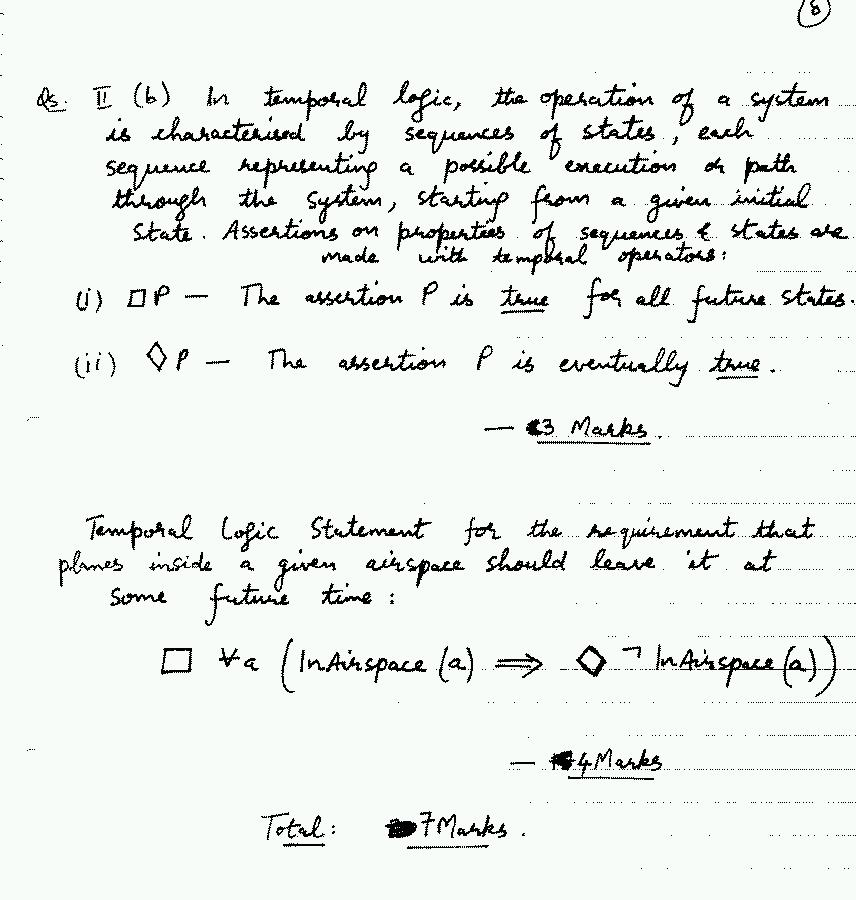 8
Qs. II (b) In temporal logic, the operation of a system
is characterised by sequences of states, each
sequence representing a possible execution or path
through the system, starting from a given initial
state. Assertions on properties of sequences & states are
made with temporal operators:
(i) □P — The assertion P is true for all future states.
(ii) ◇P — The assertion P is eventually true.
— 3 Marks.
Temporal Logic Statement for the requirement that
planes inside a given airspace should leave it at
some future time:
□ ∀a (InAirspace (a) ⟹ ◇ ¬ InAirspace (a))
— 4 Marks
Total: 7 Marks.